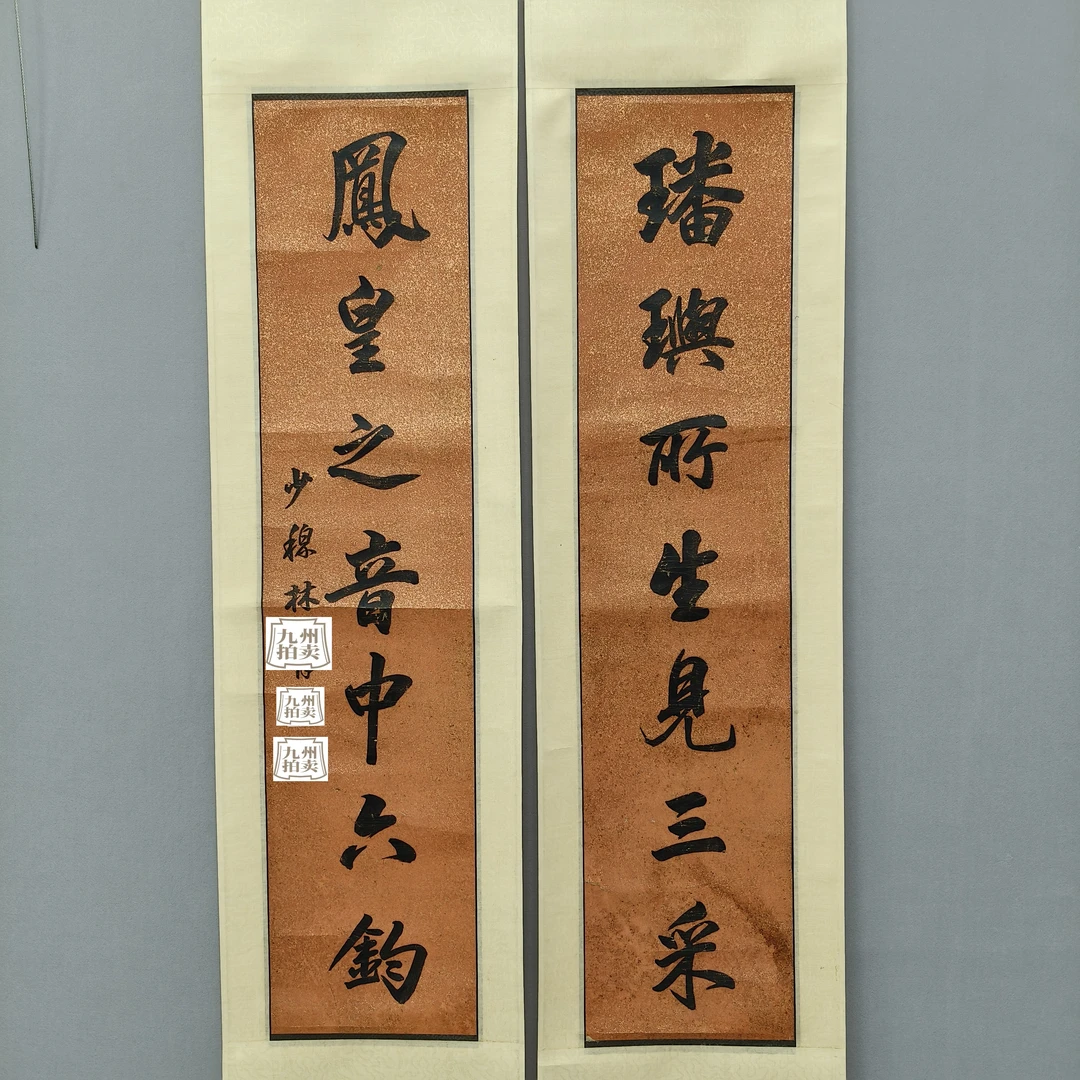 璠璵所生見三采
鳳皇之音中六鈞
少穆林
九州拍卖
九州拍卖
九州拍卖